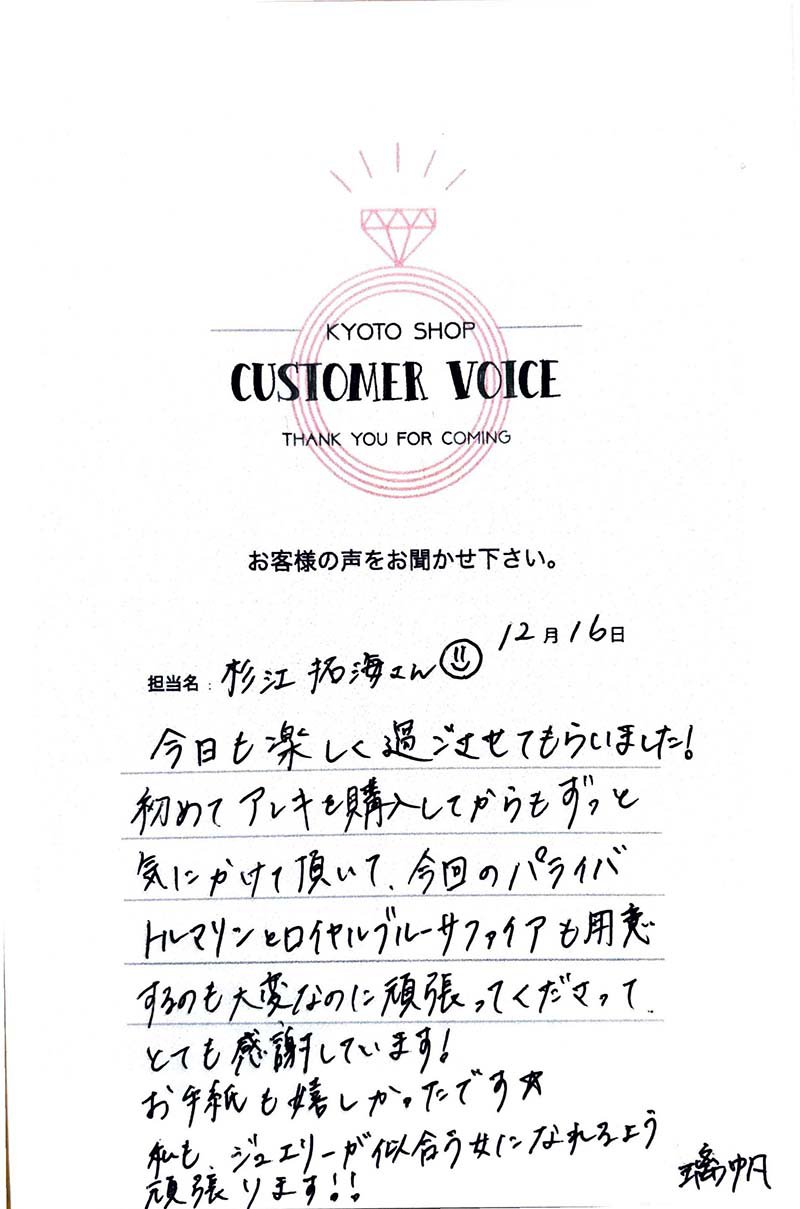 KYOTO SHOP
CUSTOMER VOICE
THANK YOU FOR COMING
お客様の声をお聞かせ下さい。
12月16日
担当名：杉江 拓海さん
今日も楽しく過ごさせてもらいました！
初めてアレキを購入してからもずっと
気にかけて頂いて、今回のパライバ
トルマリンとロイヤルブルーサファイアも用意
するのも大変なのに頑張ってくださって、
とても感謝しています！
お手紙も嬉しかったです☆
私も、ジュエリーが似合う女になれるよう
頑張ります！！